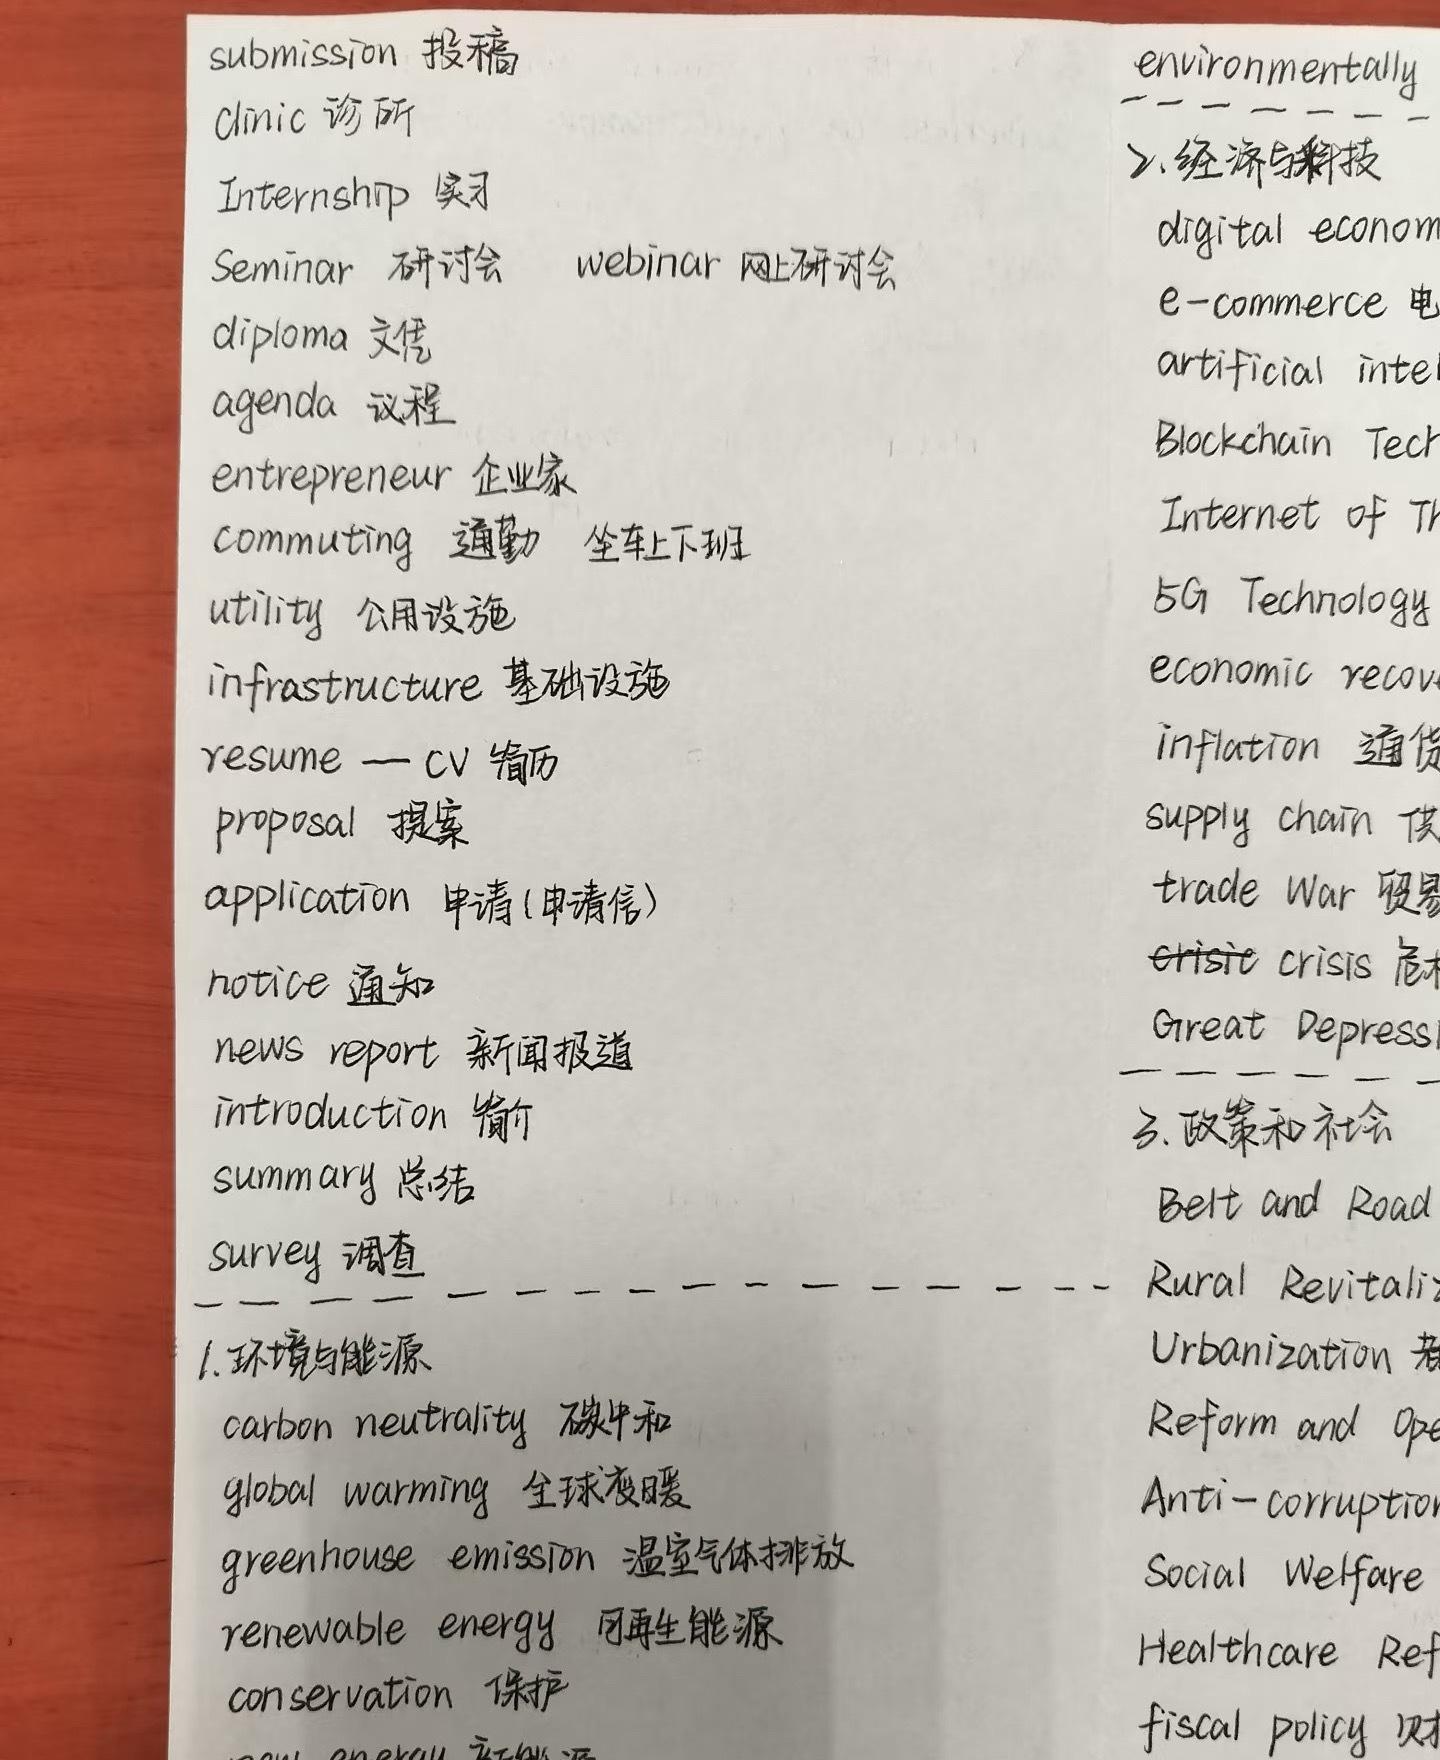 submission 投稿
clinic 诊所
Internship 实习
Seminar 研讨会 webinar 网上研讨会
diploma 文凭
agenda 议程
entrepreneur 企业家
commuting 通勤 坐车上下班
utility 公用设施
infrastructure 基础设施
resume — CV 简历
proposal 提案
application 申请(申请信)
notice 通知
news report 新闻报道
introduction 简介
summary 总结
survey 调查
1.环境与能源
carbon neutrality 碳中和
global warming 全球变暖
greenhouse emission 温室气体排放
renewable energy 可再生能源
conservation 保护
new energy 新能源
environmentally
2.经济与科技
digital econom
e-commerce 电
artificial intel
Blockchain Tech
Internet of Th
5G Technology
economic recov
inflation 通货
supply chain 供
trade War 贸易
crisis 危机
Great Depress
3.政策和社会
Belt and Road
Rural Revitaliz
Urbanization
Reform and Ope
Anti-corruption
Social Welfare
Healthcare Ref
fiscal policy 财